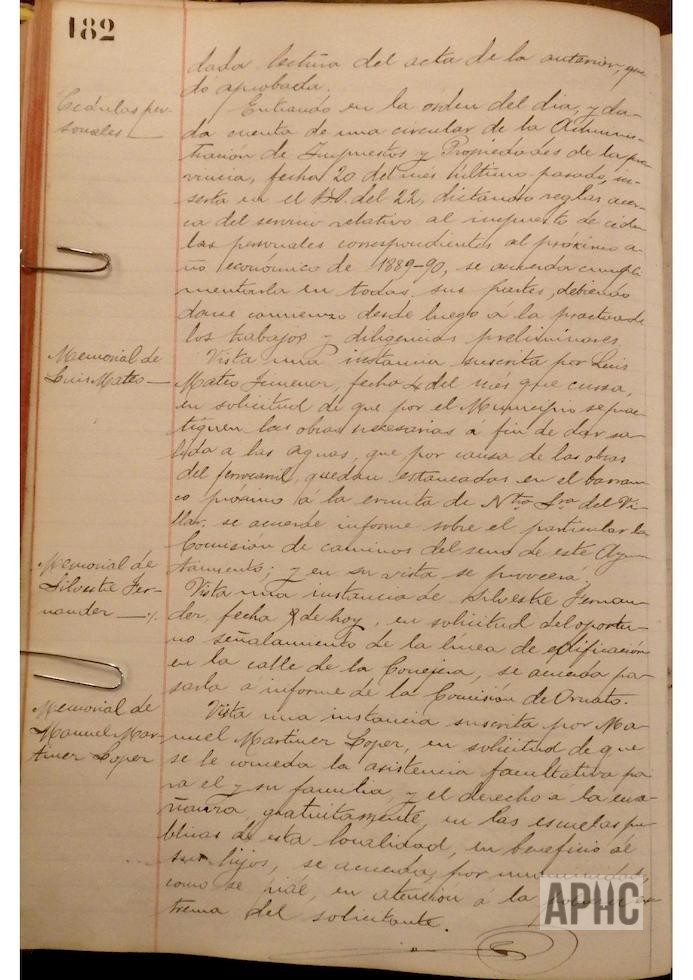 182
dada lectura del acta de la anterior, que-
dó aprobada.
Cédulas per-
sonales
Entrando en la órden del dia, y da-
da cuenta de una circular de la Adminis-
tración de Impuestos y Propiedades de la pro-
vincia, fecha 20 del mes último pasado, in-
serta en el B.O. del 22, dictando reglas acer-
ca del servicio relativo al impuesto de cédu-
las personales correspondientes al próximo a-
ño económico de 1889-90, se acuerda cumpli-
mentarla en todas sus partes, debiendo
darse comienzo desde luego á la practica de
los trabajos y diligencias preliminares.
Memorial de
Luis Mateo
Vista una instancia suscrita por Luis
Mateo Jimenez, fecha 4 del mes que cursa,
en solicitud de que por el Municipio se prac-
tiquen las obras necesarias á fin de dar sa-
lida a las aguas, que por causa de las obras
del ferrocarril, quedan estancadas en el barran-
co próximo á la ermita de Ntra Sra del Vi-
llar, se acuerde informe sobre el particular la
Comisión de caminos del seno de este Ayun-
tamiento; y en su vista se proveerá.
Memorial de
Silvestre Fer-
nandez
Vista una instancia de Silvestre Fernan-
dez, fecha de hoy, en solicitud del oportu-
no señalamiento de la línea de edificación
en la calle de la Conejera, se acuerda pa-
sarla á informe de la Comisión de Ornato.
Memorial de
Manuel Mar-
tinez Lopez
Vista una instancia suscrita por Ma-
nuel Martinez Lopez, en solicitud de que
se le conceda la asistencia facultativa pa-
ra el y su familia, y el derecho á la ense-
ñanza, gratuitamente, en las escuelas pú-
blicas de esta localidad, en beneficio de
sus hijos, se acuerda, por unanimidad,
como se pide, en atención á la pobreza ex-
trema del solicitante.
APHC